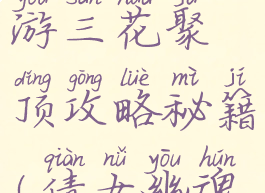 yóu sān huā jù
游三花聚
dǐng gōng lüè mì jí
顶攻略秘籍
qiàn nǚ yōu hún
(倩女幽魂